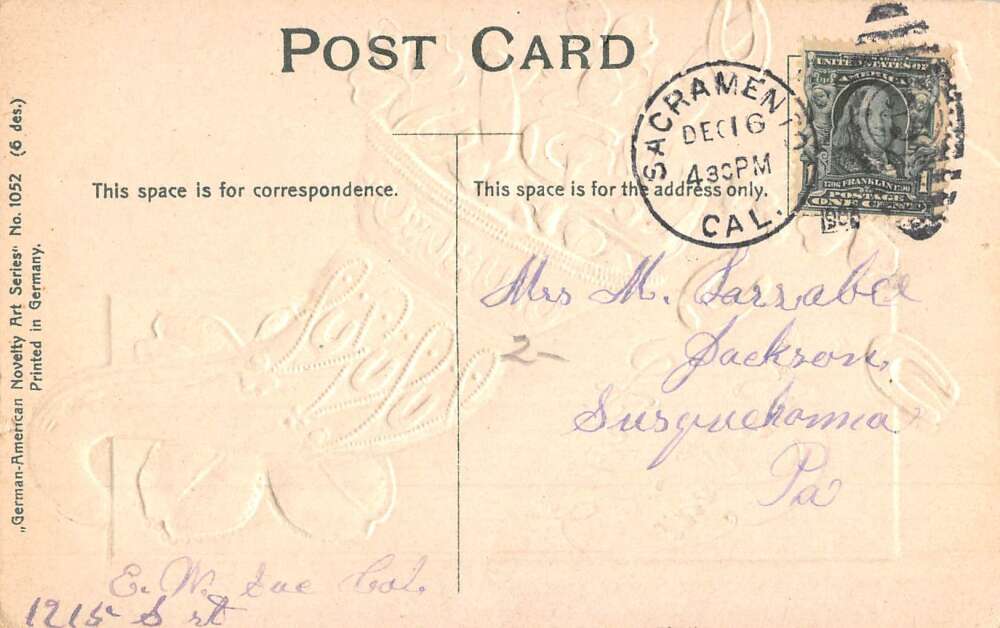 POST CARD
SACRAMENTO
DEC 16
430PM
CAL.
UNITED STATES OF
AMERICA
1706 FRANKLIN 1790
POSTAGE
ONE CENT
This space is for correspondence.
This space is for the address only.
„German-American Novelty Art Series“ No. 1052 (6 des.)
Printed in Germany.
Mrs M. Larrabee
Jackson,
Susquehanna
Pa
2-
E. W. Sac Cal.
1215 S st